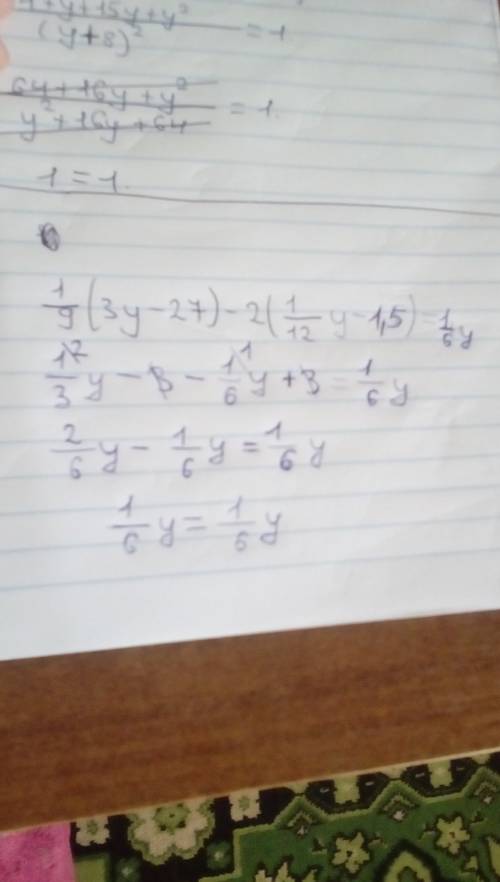 +y+15y+y²
(y+8)² = 1
64+16y+y²
y²+16y+64 = 1.
1 = 1.
1/9 (3y-27) - 2(1/12 y - 1,5) = 1/6 y
1/3 ² y - 3 - 1/6 ¹ y + 3 = 1/6 y
2/6 y - 1/6 y = 1/6 y
1/6 y = 1/6 y